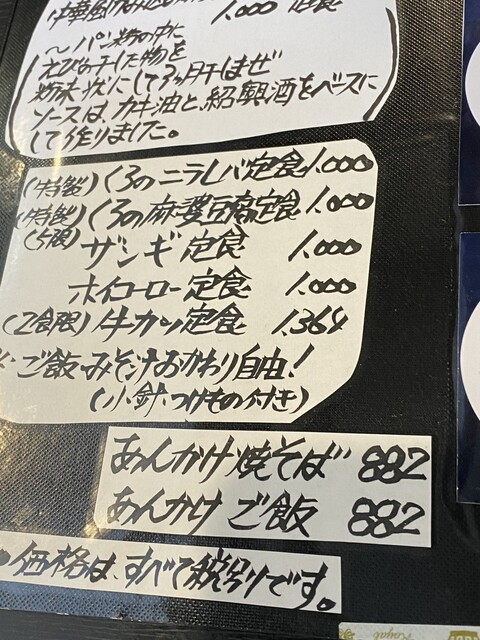 1.000 定食
〜パン粉の中に
えびの干した物を
粉末状にして3ヶ月干しまぜ
ソースは、カキ油と、紹興酒をベースに
して作りました。
(特製) くろのニラレバ定食 1.000
(特製) くろの麻婆豆腐定食 1.000
(5限) ザンギ定食 1.000
ホイコーロー定食 1.000
(2食限) 牛カツ定食 1.364
ご飯・みそ汁おかわり自由!
(小鉢、つけもの付き)
あんかけ焼そば 882
あんかけご飯 882
●価格は、すべて税別りです。
Royal